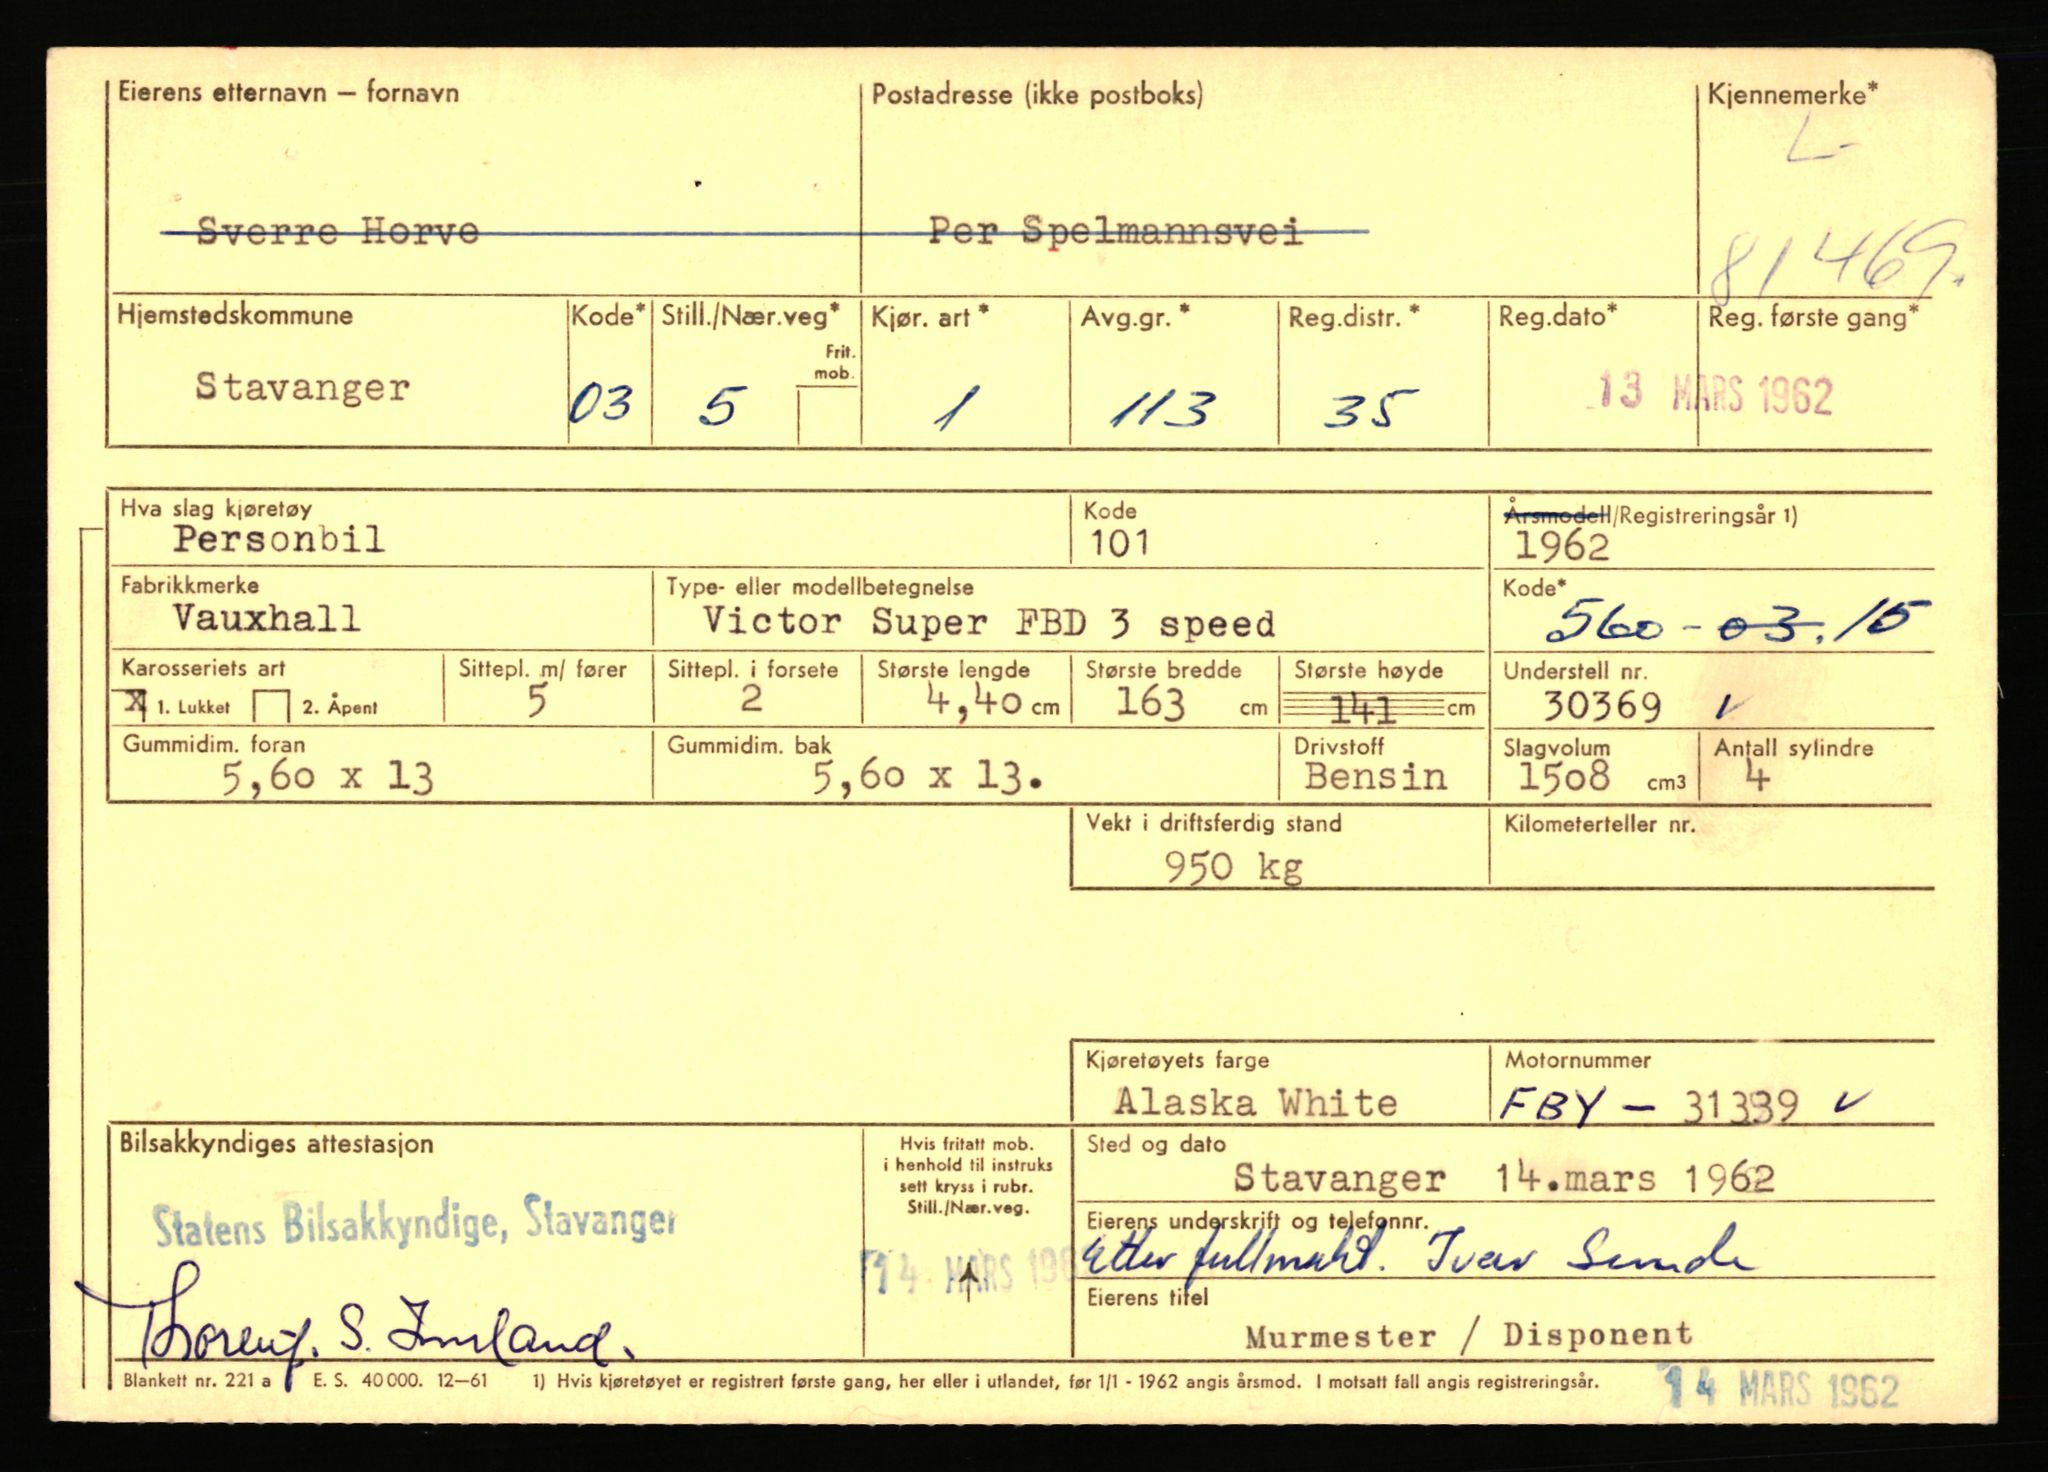 Eierens etternavn – fornavn Postadresse (ikke postboks) Kjennemerke*
L-
Sverre Horve Per Spelmannsvei
81469.
Hjemstedskommune Kode* Still./Nær.veg* Kjør. art* Avg.gr.* Reg.distr.* Reg.dato* Reg. første gang*
Frit.
mob.
Stavanger 03 5 1 113 35 13 MARS 1962
Hva slag kjøretøy Kode Årsmodell/Registreringsår 1)
Personbil 101 1962
Fabrikkmerke Type- eller modellbetegnelse Kode*
Vauxhall Victor Super FBD 3 speed 560-03.15
Karosseriets art Sittepl. m/ fører Sittepl. i forsete Største lengde Største bredde Største høyde Understell nr.
X 1. Lukket 2. Åpent 5 2 4,40 cm 163 cm 141 cm 30369 v
Gummidim. foran Gummidim. bak Drivstoff Slagvolum Antall sylindre
5,60 x 13 5,60 x 13. Bensin 1508 cm3 4
Vekt i driftsferdig stand Kilometerteller nr.
950 kg
Kjøretøyets farge Motornummer
Alaska White FBY – 31339 v
Bilsakkyndiges attestasjon Hvis fritatt mob. Sted og dato
i henhold til instruks
sett kryss i rubr.
Still./Nær.veg.
Stavanger 14.mars 1962
Statens Bilsakkyndige, Stavanger Eierens underskrift og telefonnr.
14 MARS 1962 Etter fullmakt. Iver Sunde
Eierens titel
S.
Murmester / Disponent
Blankett nr. 221 a E. S. 40 000. 12–61 1) Hvis kjøretøyet er registrert første gang, her eller i utlandet, før 1/1 - 1962 angis årsmod. I motsatt fall angis registreringsår. 14 MARS 1962